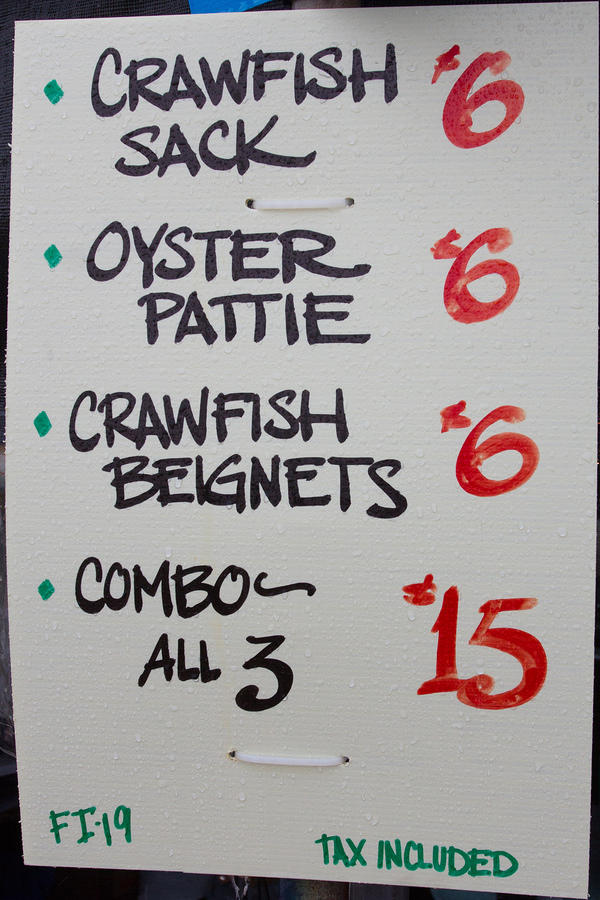 CRAWFISH $6
SACK
OYSTER $6
PATTIE
CRAWFISH $6
BEIGNETS
COMBO~ $15
ALL 3
FI-19
TAX INCLUDED